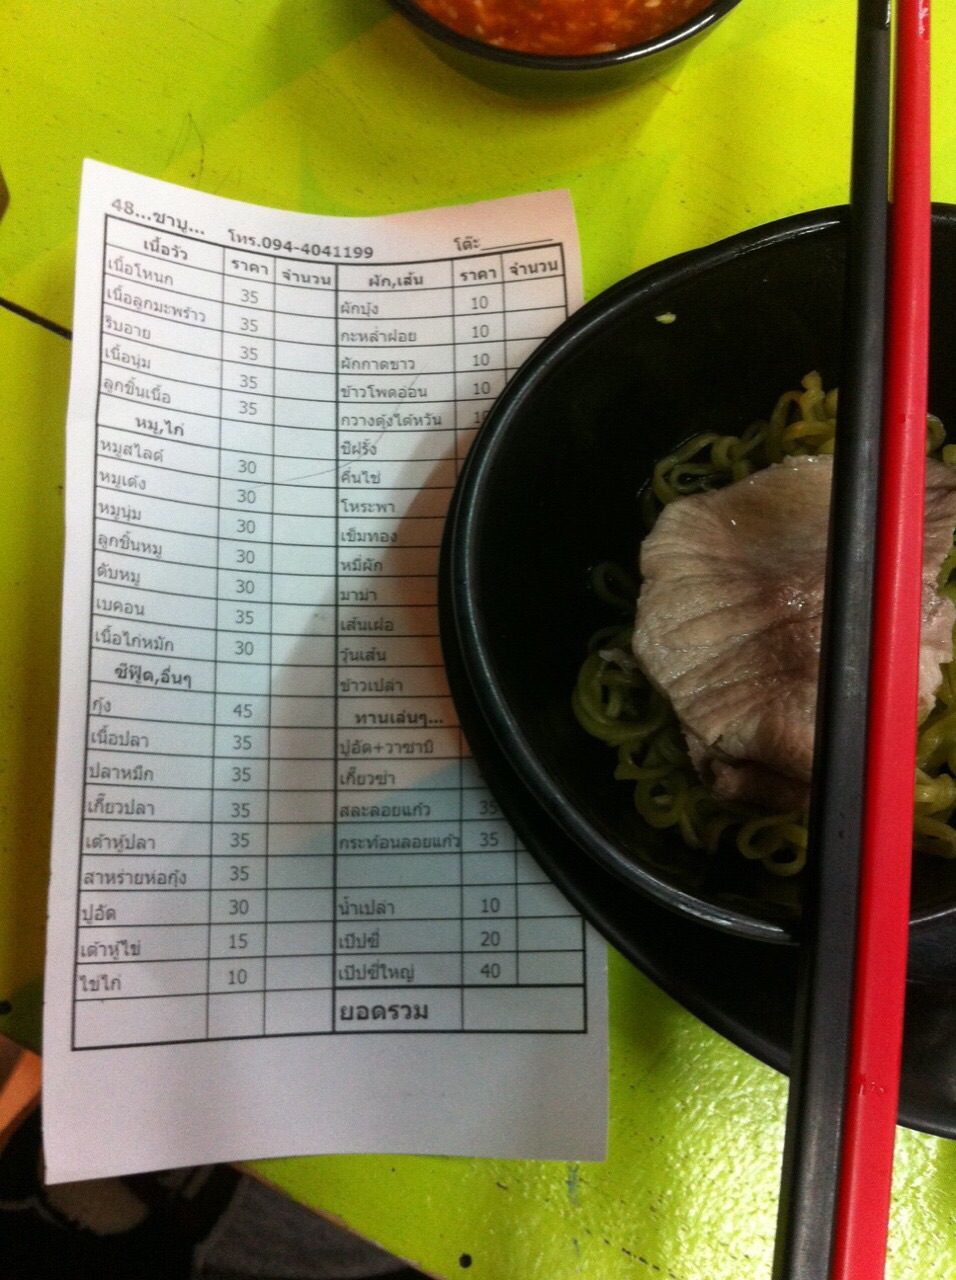 48...ชาบู... โทร.094-4041199 โต๊ะ
เนื้อวัว ราคา จำนวน ผัก,เส้น ราคา จำนวน
เนื้อโหนก 35 ผักบุ้ง 10
เนื้อลูกมะพร้าว 35 กะหล่ำฝอย 10
ริบอาย 35 ผักกาดขาว 10
เนื้อนุ่ม 35 ข้าวโพดอ่อน 10
ลูกชิ้นเนื้อ 35 กวางตุ้งไต้หวัน
หมู,ไก่ ชีฝรั่ง
หมูสไลด์ 30 คื่นไช่
หมูเด้ง 30 โหระพา
หมูนุ่ม 30 เข็มทอง
ลูกชิ้นหมู 30 หมี่ผัก
ตับหมู 30 มาม่า
เบคอน 35 เส้นเฝอ
เนื้อไก่หมัก 30 วุ้นเส้น
ซีฟู๊ด,อื่นๆ ข้าวเปล่า
กุ้ง 45 ทานเล่นๆ...
เนื้อปลา 35 ปูอัด+วาซาบิ
ปลาหมึก 35 เกี๊ยวซ่า
เกี๊ยวปลา 35 สละลอยแก้ว 35
เต้าหู้ปลา 35 กระท้อนลอยแก้ว 35
สาหร่ายห่อกุ้ง 35
ปูอัด 30 น้ำเปล่า 10
เต้าหู้ไข่ 15 เป๊ปซี่ 20
ไข่ไก่ 10 เป๊ปซี่ใหญ่ 40
ยอดรวม